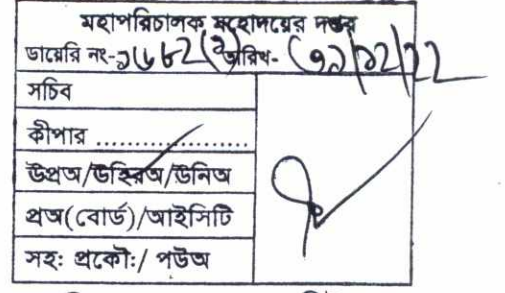 মহাপরিচালক মহোদয়ের দপ্তর
ডায়েরি নং- তারিখ-
সচিব
কীপার ......................
উপ্রঅ/উহিরঅ/উনিঅ
প্রঅ(বোর্ড)/আইসিটি
সহঃ প্রকৌঃ/ পউঅ